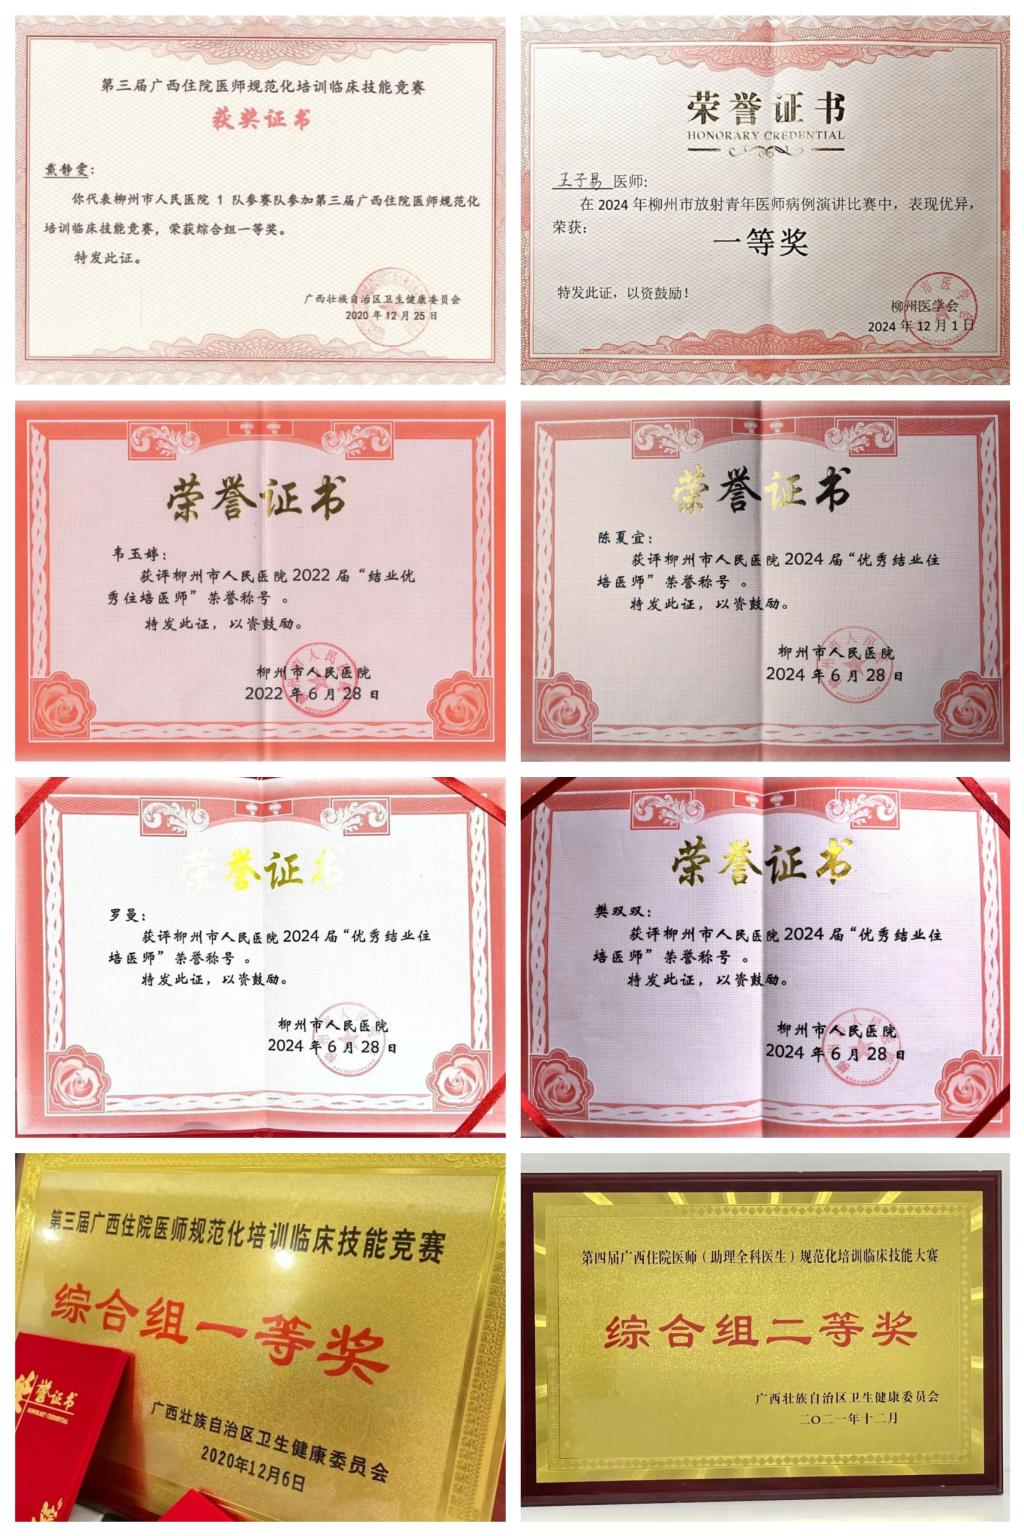 第三届广西住院医师规范化培训临床技能竞赛
获奖证书
戴静雯：
你代表柳州市人民医院 1 队参赛队参加第三届广西住院医师规范化
培训临床技能竞赛，荣获综合组一等奖。
特发此证。
广西壮族自治区卫生健康委员会
2020 年 12 月 25 日
荣誉证书
HONORARY CREDENTIAL
王子易 医师:
在 2024 年柳州市放射青年医师病例演讲比赛中，表现优异，
荣获：
一等奖
特发此证，以资鼓励！
柳州医学会
2024 年 12 月 1 日
荣誉证书
韦玉婷：
获评柳州市人民医院 2022 届“结业优
秀住培医师”荣誉称号 。
特发此证，以资鼓励。
柳州市人民医院
2022 年 6 月 28 日
荣誉证书
陈夏宜：
获评柳州市人民医院 2024 届“优秀结业住
培医师”荣誉称号 。
特发此证，以资鼓励。
柳州市人民医院
2024 年 6 月 28 日
荣誉证书
罗曼：
获评柳州市人民医院 2024 届“优秀结业住
培医师”荣誉称号 。
特发此证，以资鼓励。
柳州市人民医院
2024 年 6 月 28 日
荣誉证书
樊双双：
获评柳州市人民医院 2024 届“优秀结业住
培医师”荣誉称号 。
特发此证，以资鼓励。
柳州市人民医院
2024 年 6 月 28 日
第三届广西住院医师规范化培训临床技能竞赛
综合组一等奖
广西壮族自治区卫生健康委员会
2020年12月6日
荣誉证书
HONORARY CREDENTIAL
第四届广西住院医师（助理全科医生）规范化培训临床技能大赛
综合组二等奖
广西壮族自治区卫生健康委员会
二〇二一年十二月